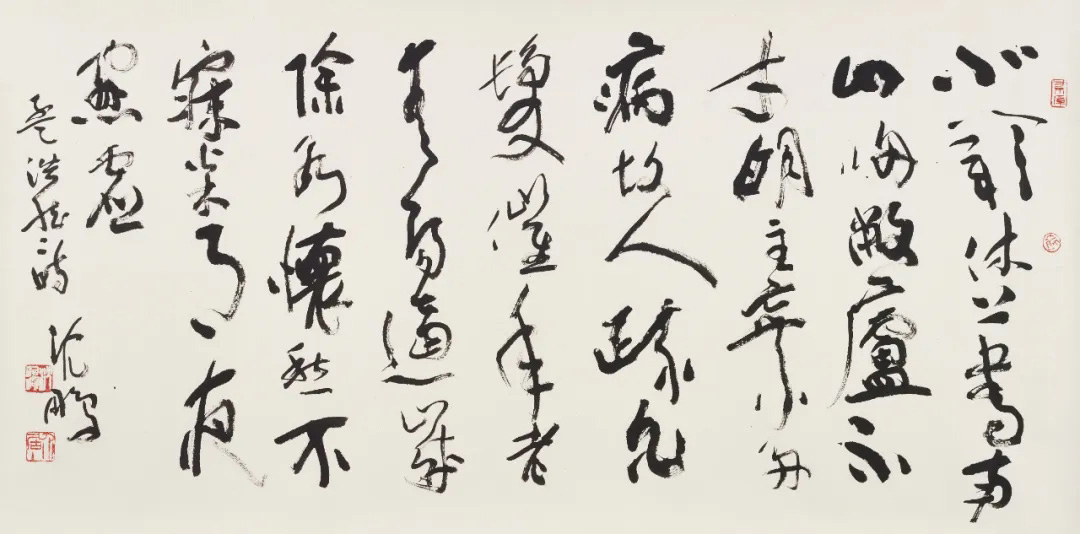 北闕休上書南
山歸敝廬不
才明主棄多
病故人疏白
髮催年老
青陽逼歲
除永懷愁不
寐松月夜
窗虛
孟浩然詩 沈鵬